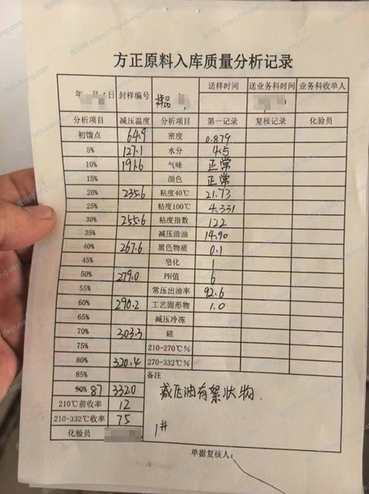 方正原料入库质量分析记录
年 月 日 封样编号 样品 送样时间 送业务科时间 业务科收单人
分析项目 减压温度 分析项目 第一记录 复核记录 化验员
初馏点 64.9 密度 0.879
5% 127.1 水分 4.5
10% 191.6 气味 正常
15% 颜色 正常
20% 235.6 粘度40℃ 21.73
25% 粘度100℃ 4.331
30% 255.6 粘度指数 122
35% 减压渣油 14.90
40% 267.6 黑色物质 0.1
45% 皂化 1
50% 279.0 PH值 6
55% 常压出油率 92.6
60% 290.2 工艺固形物 1.0
65% 减压冷冻
70% 303.3 硅
75% 210-270℃%
80% 320.4 270-332℃%
85% 备注
90% 87 332.0 减压油有絮状物.
210℃前收率 12
210-332℃收率 75 1#
化验员
单据复核人: